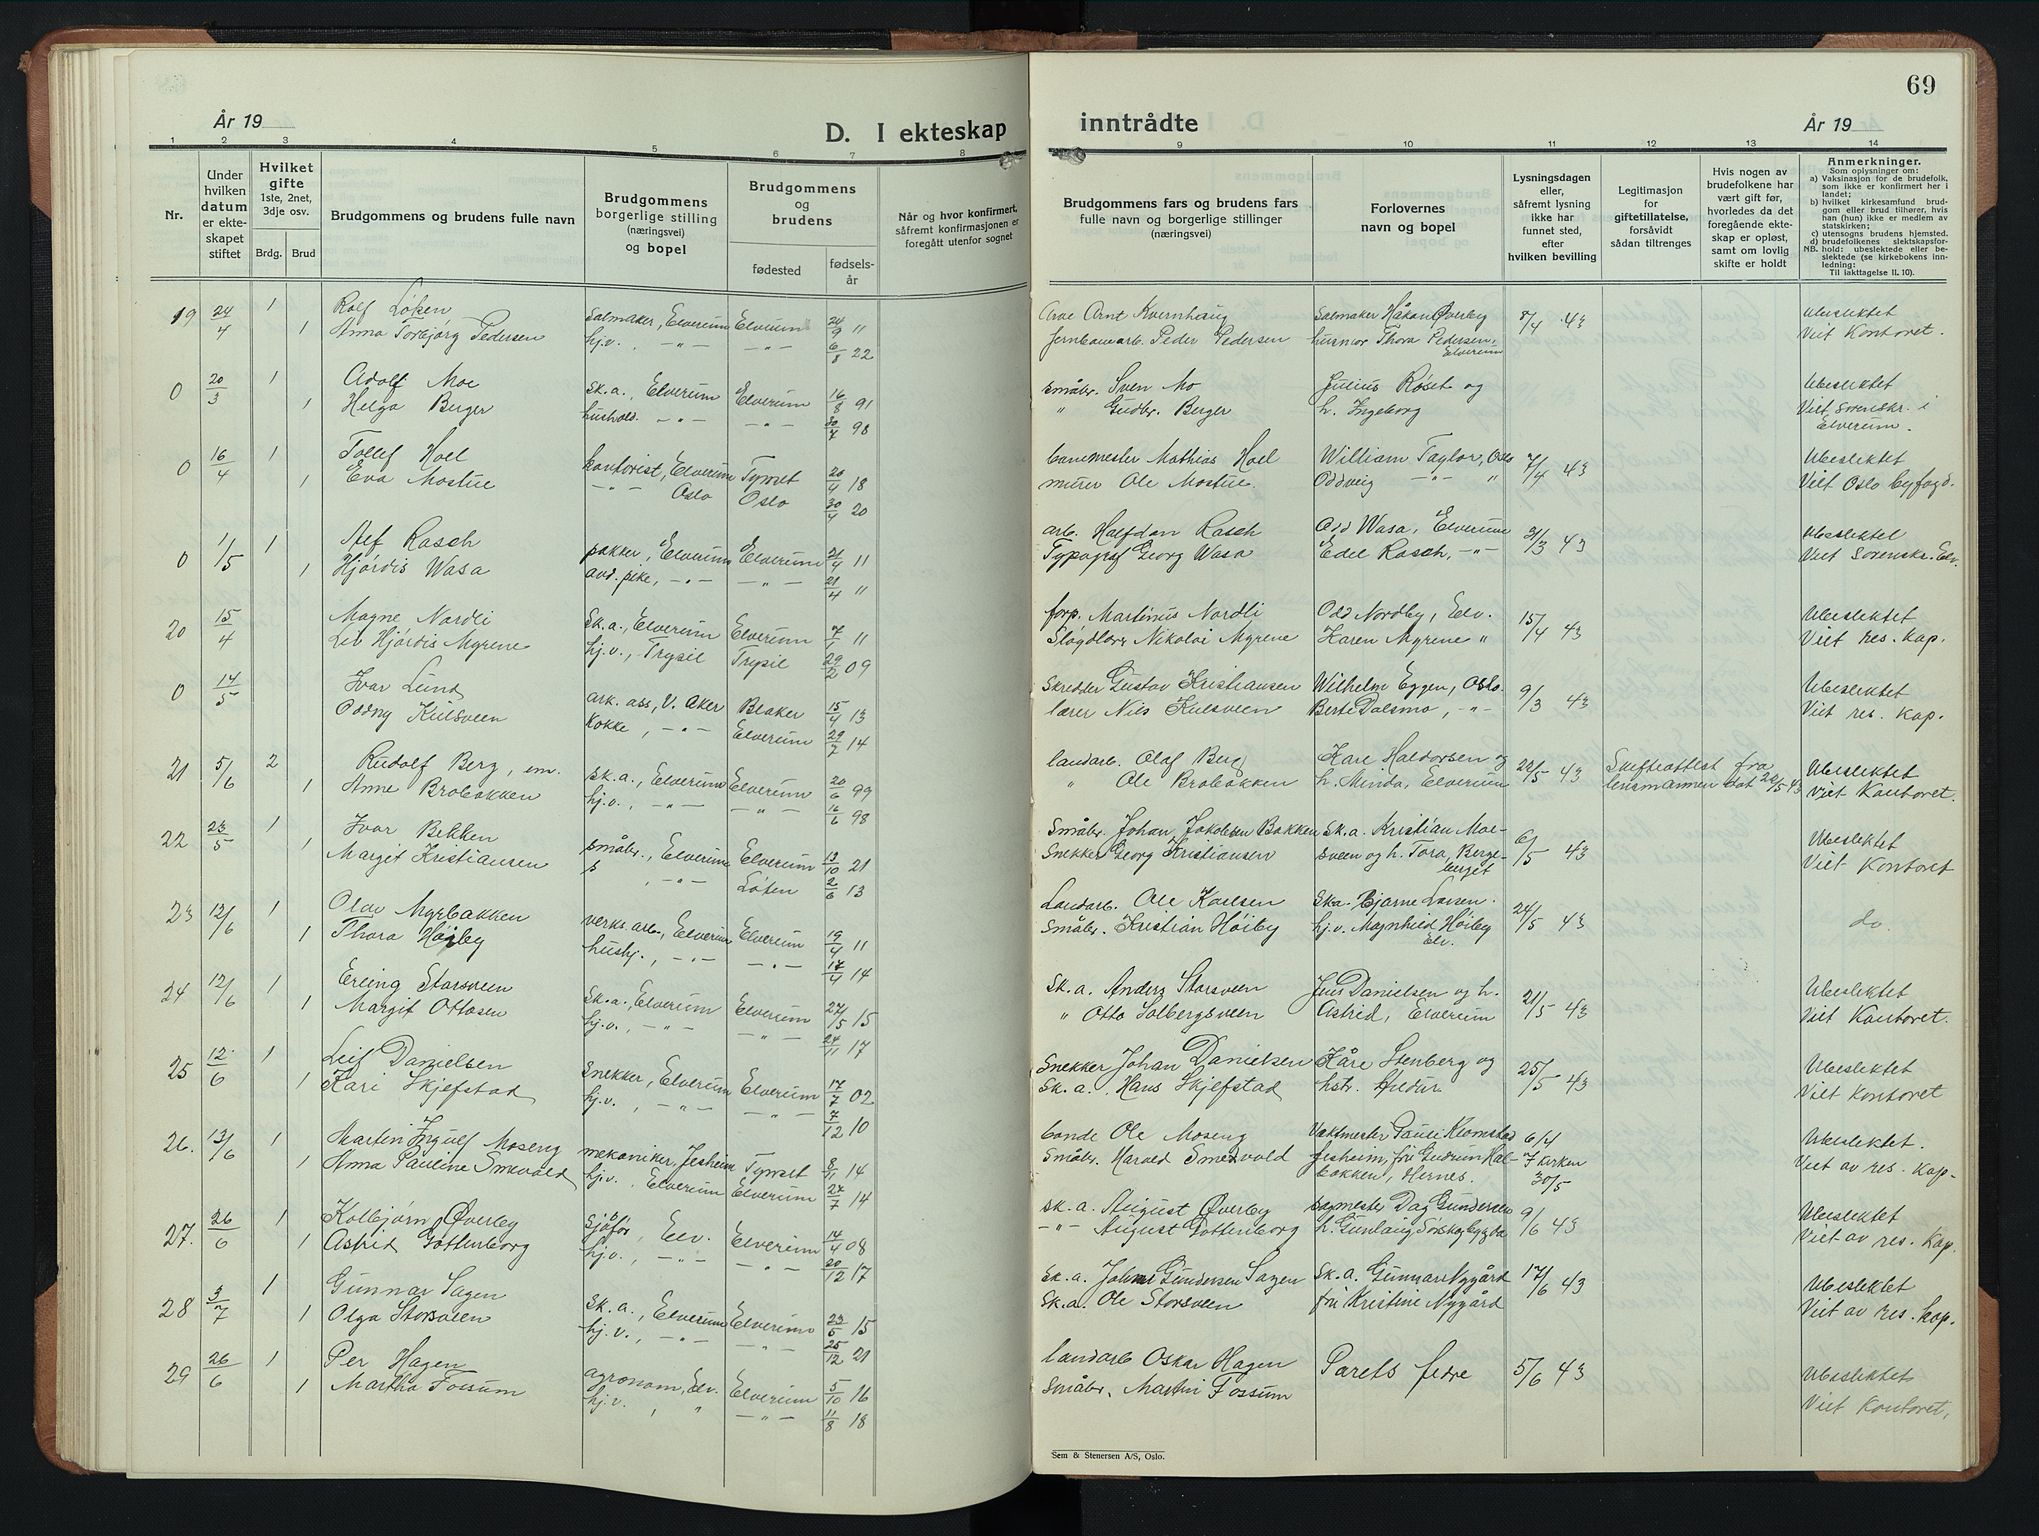 69
År 19
D. I ekteskap
inntrådte
År 19
1 2 3 4 5 6 7 8 9 10 11 12 13 14
Nr.
Under hvilken datum er ekteskapet stiftet
Hvilket gifte 1ste, 2net, 3dje osv.
Brdg. Brud
Brudgommens og brudens fulle navn
Brudgommens borgerlige stilling (næringsvei) og bopel
Brudgommens og brudens
fødested
fødselsår
Når og hvor konfirmert, såfremt konfirmasjonen er foregått utenfor sognet
Brudgommens fars og brudens fars fulle navn og borgerlige stillinger (næringsvei)
Forlovernes navn og bopel
Lysningsdagen eller, såfremt lysning ikke har funnet sted, efter hvilken bevilling
Legitimasjon for giftetillatelse, forsåvidt sådan tiltrenges
Hvis nogen av brudefolkene har vært gift før, hvorledes da det foregående ekteskap er opløst, samt om lovlig skifte er holdt
Anmerkninger.
Som oplysninger om:
a) Vaksinasjon for de brudefolk, som ikke er konfirmert her i landet;
b) hvilket kirkesamfund brudgom eller brud tilhører, hvis han (hun) ikke er medlem av statskirken;
c) utensogns brudens hjemsted.
d) brudefolkenes slektskapsforhold: ubeslektede eller beslektede (se kirkebokens innledning:
NB. Til iakttagelse II. 10).
19 24/4 1 Rolf Løken salmaker, Elverum Elverum 24/9 11 Arnt Kvernhaug Salmaker Håkon Øverby 7/4 43 Ubeslektet
1 Anna Torbjørg Pedersen hj.v. -"- -"- 6/8 22 jernbanearb. Peder Pedersen husmor Thora Pedersen, Elverum Viet Kontoret.
0 20/3 1 Adolf Moe sk.a., Elverum Elverum 16/8 91 småbr. Sven Mo Julius Røset og Ubeslektet
1 Helga Berger hushold. -"- -"- 30/7 98 " Gudbr. Berger h. Ingeborg Viet sorenskr. i Elverum.
0 16/4 1 Tollef Hoel kontorist, Elverum Tynset 20/4 18 banemester Mathias Hoel William Taylor, Oslo 7/4 43 Ubeslektet
1 Eva Mostue -"- Oslo Oslo 30/4 20 murer Ole Mostue. Oddveig -"- " Viet Oslo byfogd.
0 1/5 1 Alf Rasch pakker, Elverum Elverum 21/4 11 arb. Halfdan Rasch Odd Wasa, Elverum 31/3 43 Ubeslektet
1 Hjørdis Wasa avd. pike, -"- -"- 21/4 11 Typograf Georg Wasa Edel Rasch, -"- Viet Sorenskr. Elv.
20 15/4 1 Magne Nordli Sk.a., Elverum Elverum 7/1 11 forp. Martinus Nordli Odd Nordby, Elv. 15/4 43 Ubeslektet
1 Liv Hjördis Myrene hj.v., Trysil Trysil 29/2 09 Sløgdlærer Nikolai Myrene Karen Myrene " Viet res. kap.
0 14/5 Ivar Lund ark. ass, V. Aker Blaker 15/4 13 Skredder Gustav Kristiansen Wilhelm Eggen, Oslo. 9/3 43 Ubeslektet
Oddny Kulsveen Kokke, -"- Elverum 29/7 14 lærer Nils Kulsveen Berte Dalsmo, -"- Viet res. Kap.
21 5/6 2 Rudolf Berg, em. sk.a., Elverum Elverum 20/6 99 landarb. Olaf Berg Kåre Haldorsen og 22/5 43 Skifteattest fra Ubeslektet
1 Anne Brobakken hj.v., -"- -"- 16/6 98 " Ole Brobakken h. Minda, Elverum lensmannen dat 20/5 43 Viet Kontoret.
22 23/5 1 Ivar Bekken småbr., Elverum Elverum 13/10 21 Småbr. Johan Jakobsen Bakken Sk.a. Kristian Moe- 6/5 43 Ubeslektet
1 Margit Kristiansen s , -"- Løten 2/6 13 Snekker Georg Kristiansen sveen og h. Tora, Bergeberget Viet Kontoret
23 12/6 1 Olav Myrbakken verks.arb., Elverum Elverum 19/4 11 Landarb. Ole Karlsen Ska. Bjarne Larsen. 24/5 43 do.
1 Thora Høiby hushj., -"- -"- 17/4 14 Småbr. Kristian Høiby hj.v. Magnhild Høiby Elv.
24 12/6 1 Erling Storsveen Sk.a., Elverum Elverum 27/5 15 Sk.a. Anders Storsveen Jens Danielsen og h. 21/5 43 Ubeslektet
1 Margit Ottosen hj.v., -"- -"- 24/11 17 " Otto Solbergsveen Astrid, Elverum Viet Kontoret.
25 12/6 1 Leif Danielsen Snekker, Elverum Elverum 17/7 02 Snekker Johan Danielsen Kåre Stenberg og 25/5 43 Ubeslektet
1 Kari Skjefstad hj.v. -"- -"- 7/12 10 Sk.a. Hans Skjefstad hstr. Huldur Viet Kontoret
26. 13/6 1 Martin Ingulf Moseng mekaniker, Jesheim Tynset 8/11 14 bonde Ole Moseng Vaktmester Pauli Klomstad 6/4 Ubeslektet.
1 Anna Pauline Smevold hj.v., Elverum Elverum 27/7 14 Småbr. Harald Smedvold Jesheim, frk Gudrun Halbakken, Hernes. I kirken 30/5 Viet av res. Kap.
27. 26/6 1 Kolbjørn Øverby Sjåfør, Elv. Elverum 14/4 08 sk.a. August Øverby sagmester Dag Gundersen 9/6 43 Ubeslektet
1 Astrid Gottenborg hj.v., -"- -"- 20/12 17 -"- August Gottenborg h. Gunlaug Sørskogbygda Viet av res. Kap.
28 3/7 1 Gunnar Sagen Sk.a., Elverum Elverum 23/5 15 Sk.a. Johan Gundersen Sagen Sk.a. Gunnar Nygård 17/6 43 Ubeslektet
1 Olga Storsveen hj.v., -"- -"- 25/12 21 Sk.a. Ole Storsveen fru Kristine Nygård Viet av res. kap.
29 26/6 1 Per Hagen agronom, Elv. Elverum 5/10 16 landarb Oskar Hagen Parets fedre 5/6 43 Ubeslektet
1 Martha Fossum hj.v. , " -"- 11/8 18 Småbr. Martin Fossum Viet Kontoret.
Sem & Stenersen A/S, Oslo.